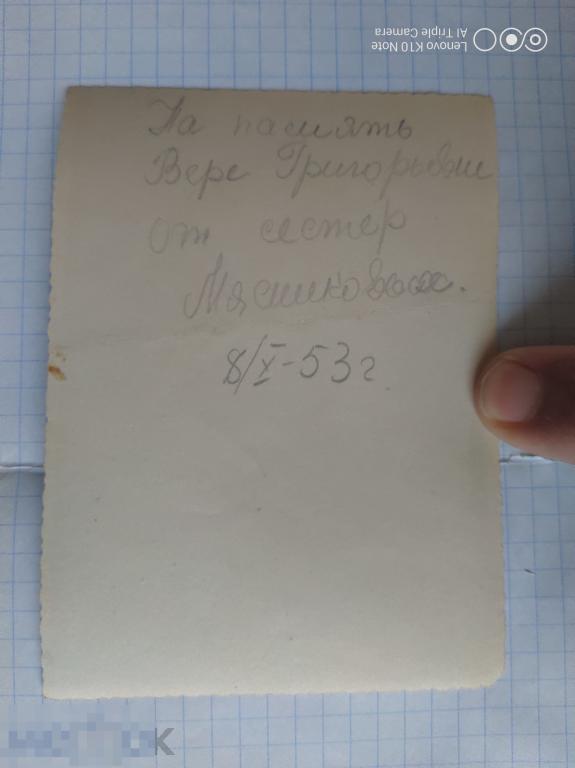 На память
Вере Григорьевне
от сестер
Мясниковых.
8/X-53 г.
Lenovo K10 Note
AI Triple Camera